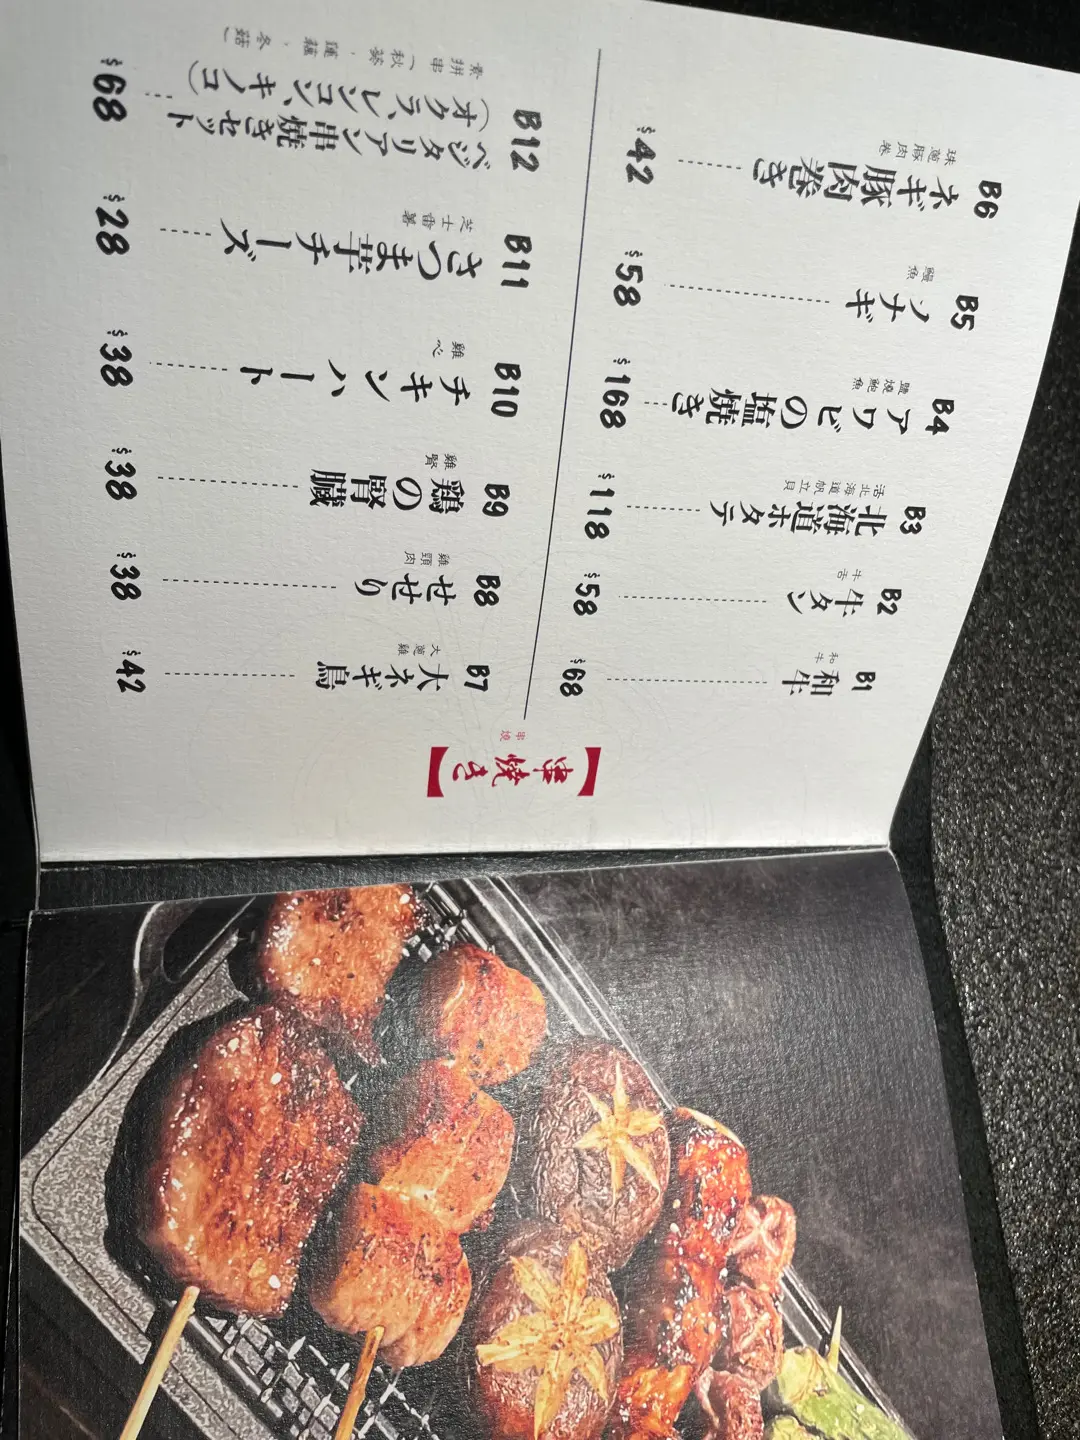 【串焼き】
串燒
B1 和牛 $68
和牛
B2 牛タン $58
牛舌
B3 北海道ホタテ $118
活北海道帆立貝
B4 アワビの塩焼き $168
鹽燒鮑魚
B5 ウナギ $58
鰻魚
B6 ネギ豚肉巻き $42
珠蔥豚肉卷
B7 大ネギ鳥 $42
大蔥雞
B8 せせり $38
雞頸肉
B9 鶏の腎臓 $38
雞腎
B10 チキンハート $38
雞心
B11 さつま芋チーズ $28
芝士蕃薯
B12 ベジタリアン串焼きセット
(オクラ、レンコン、キノコ) $68
素拼串(秋葵,蓮藕,冬菇)